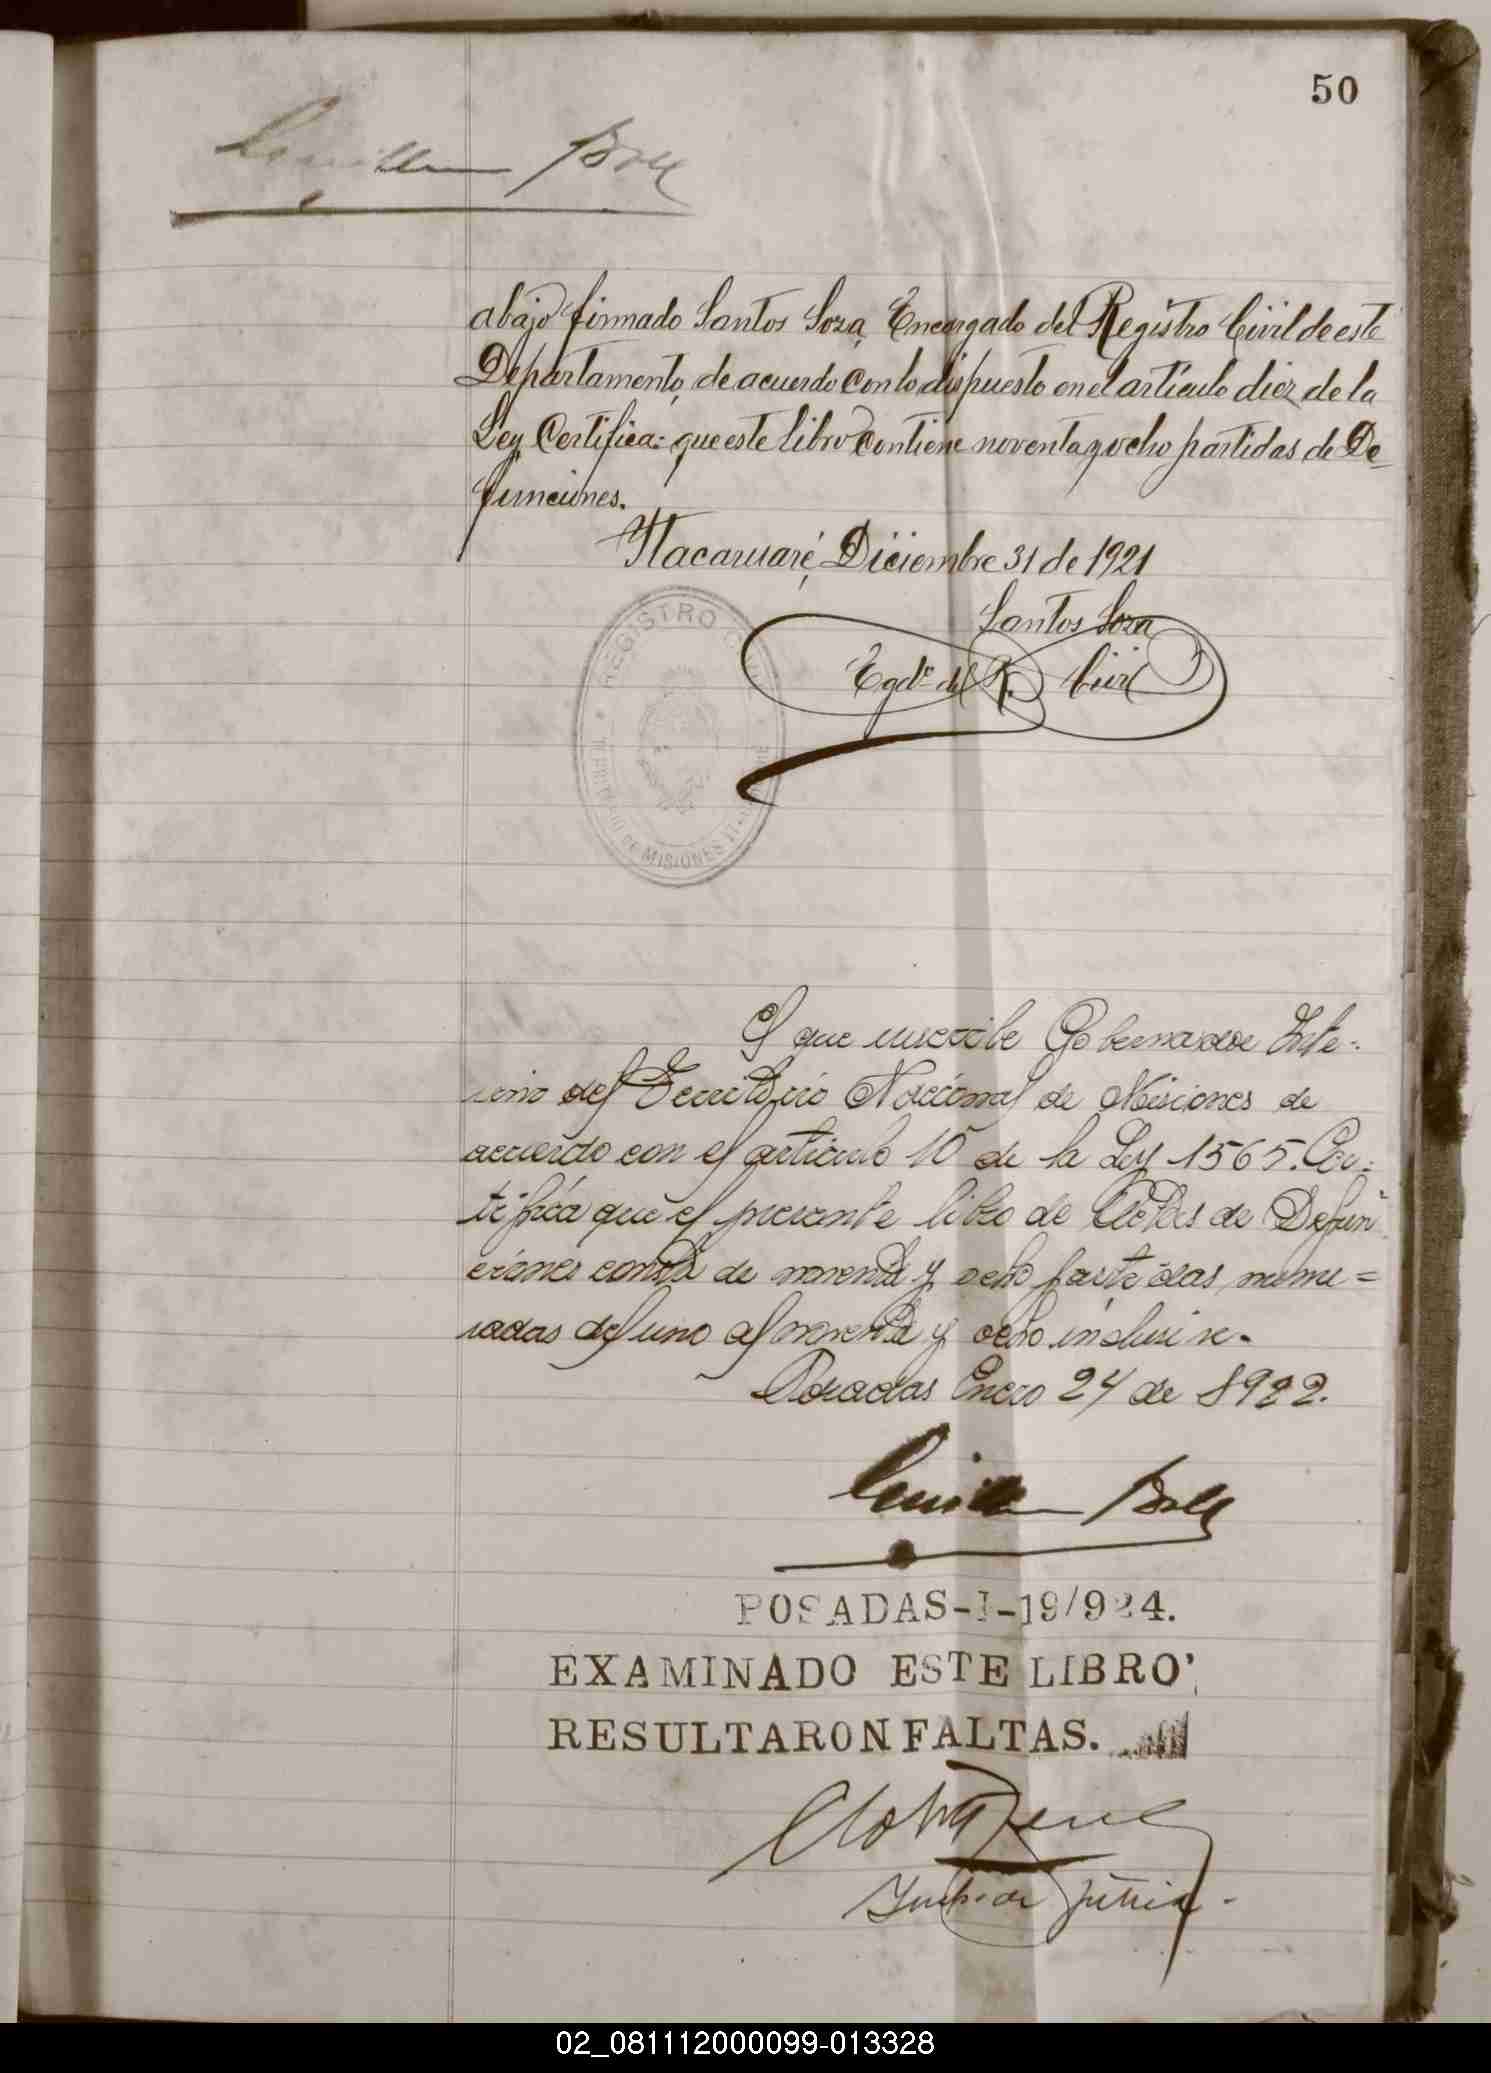 50
abajo firmado Santos Soza, Encargado del Registro Civil de este
Departamento, de acuerdo con lo dispuesto en el artículo diez de la
Ley Certifica: que este libro contiene noventa y ocho partidas de De-
funciones.
Itacaruaré, Diciembre 31 de 1921
Santos Soza
Egdo. del R. Civil
REGISTRO CIVIL
TERRITORIO DE MISIONES
El que suscribe Gobernador Inte-
rino del Territorio Nacional de Misiones de
acuerdo con el artículo 10 de la Ley 1565. Cer-
tifica que el presente libro de Actas de Defun
ciones consta de noventa y ocho partidas nume=
radas del uno al noventa y ocho inclusive.
Posadas Enero 24 de 1922.
POSADAS-I-19/924.
EXAMINADO ESTE LIBRO
RESULTARON FALTAS.
02_081112000099-013328